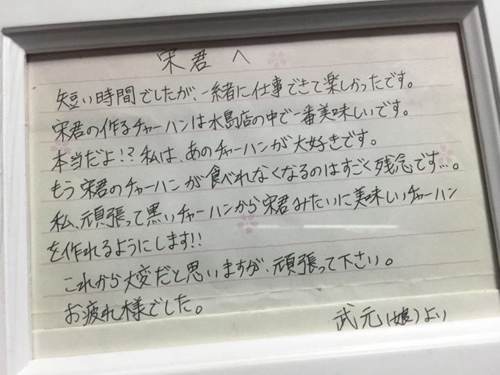 宋君へ
短い時間でしたが、一緒に仕事できて楽しかったです。
宋君の作るチャーハンは水島店の中で一番美味しいです。
本当だよ!?私は、あのチャーハンが大好きです。
もう宋君のチャーハンが食べれなくなるのはすごく残念です…。
私、頑張って黒いチャーハンから宋君みたいに美味しいチャーハン
を作れるようにします!!
これから大変だと思いますが、頑張って下さい。
お疲れ様でした。
武元(娘)より